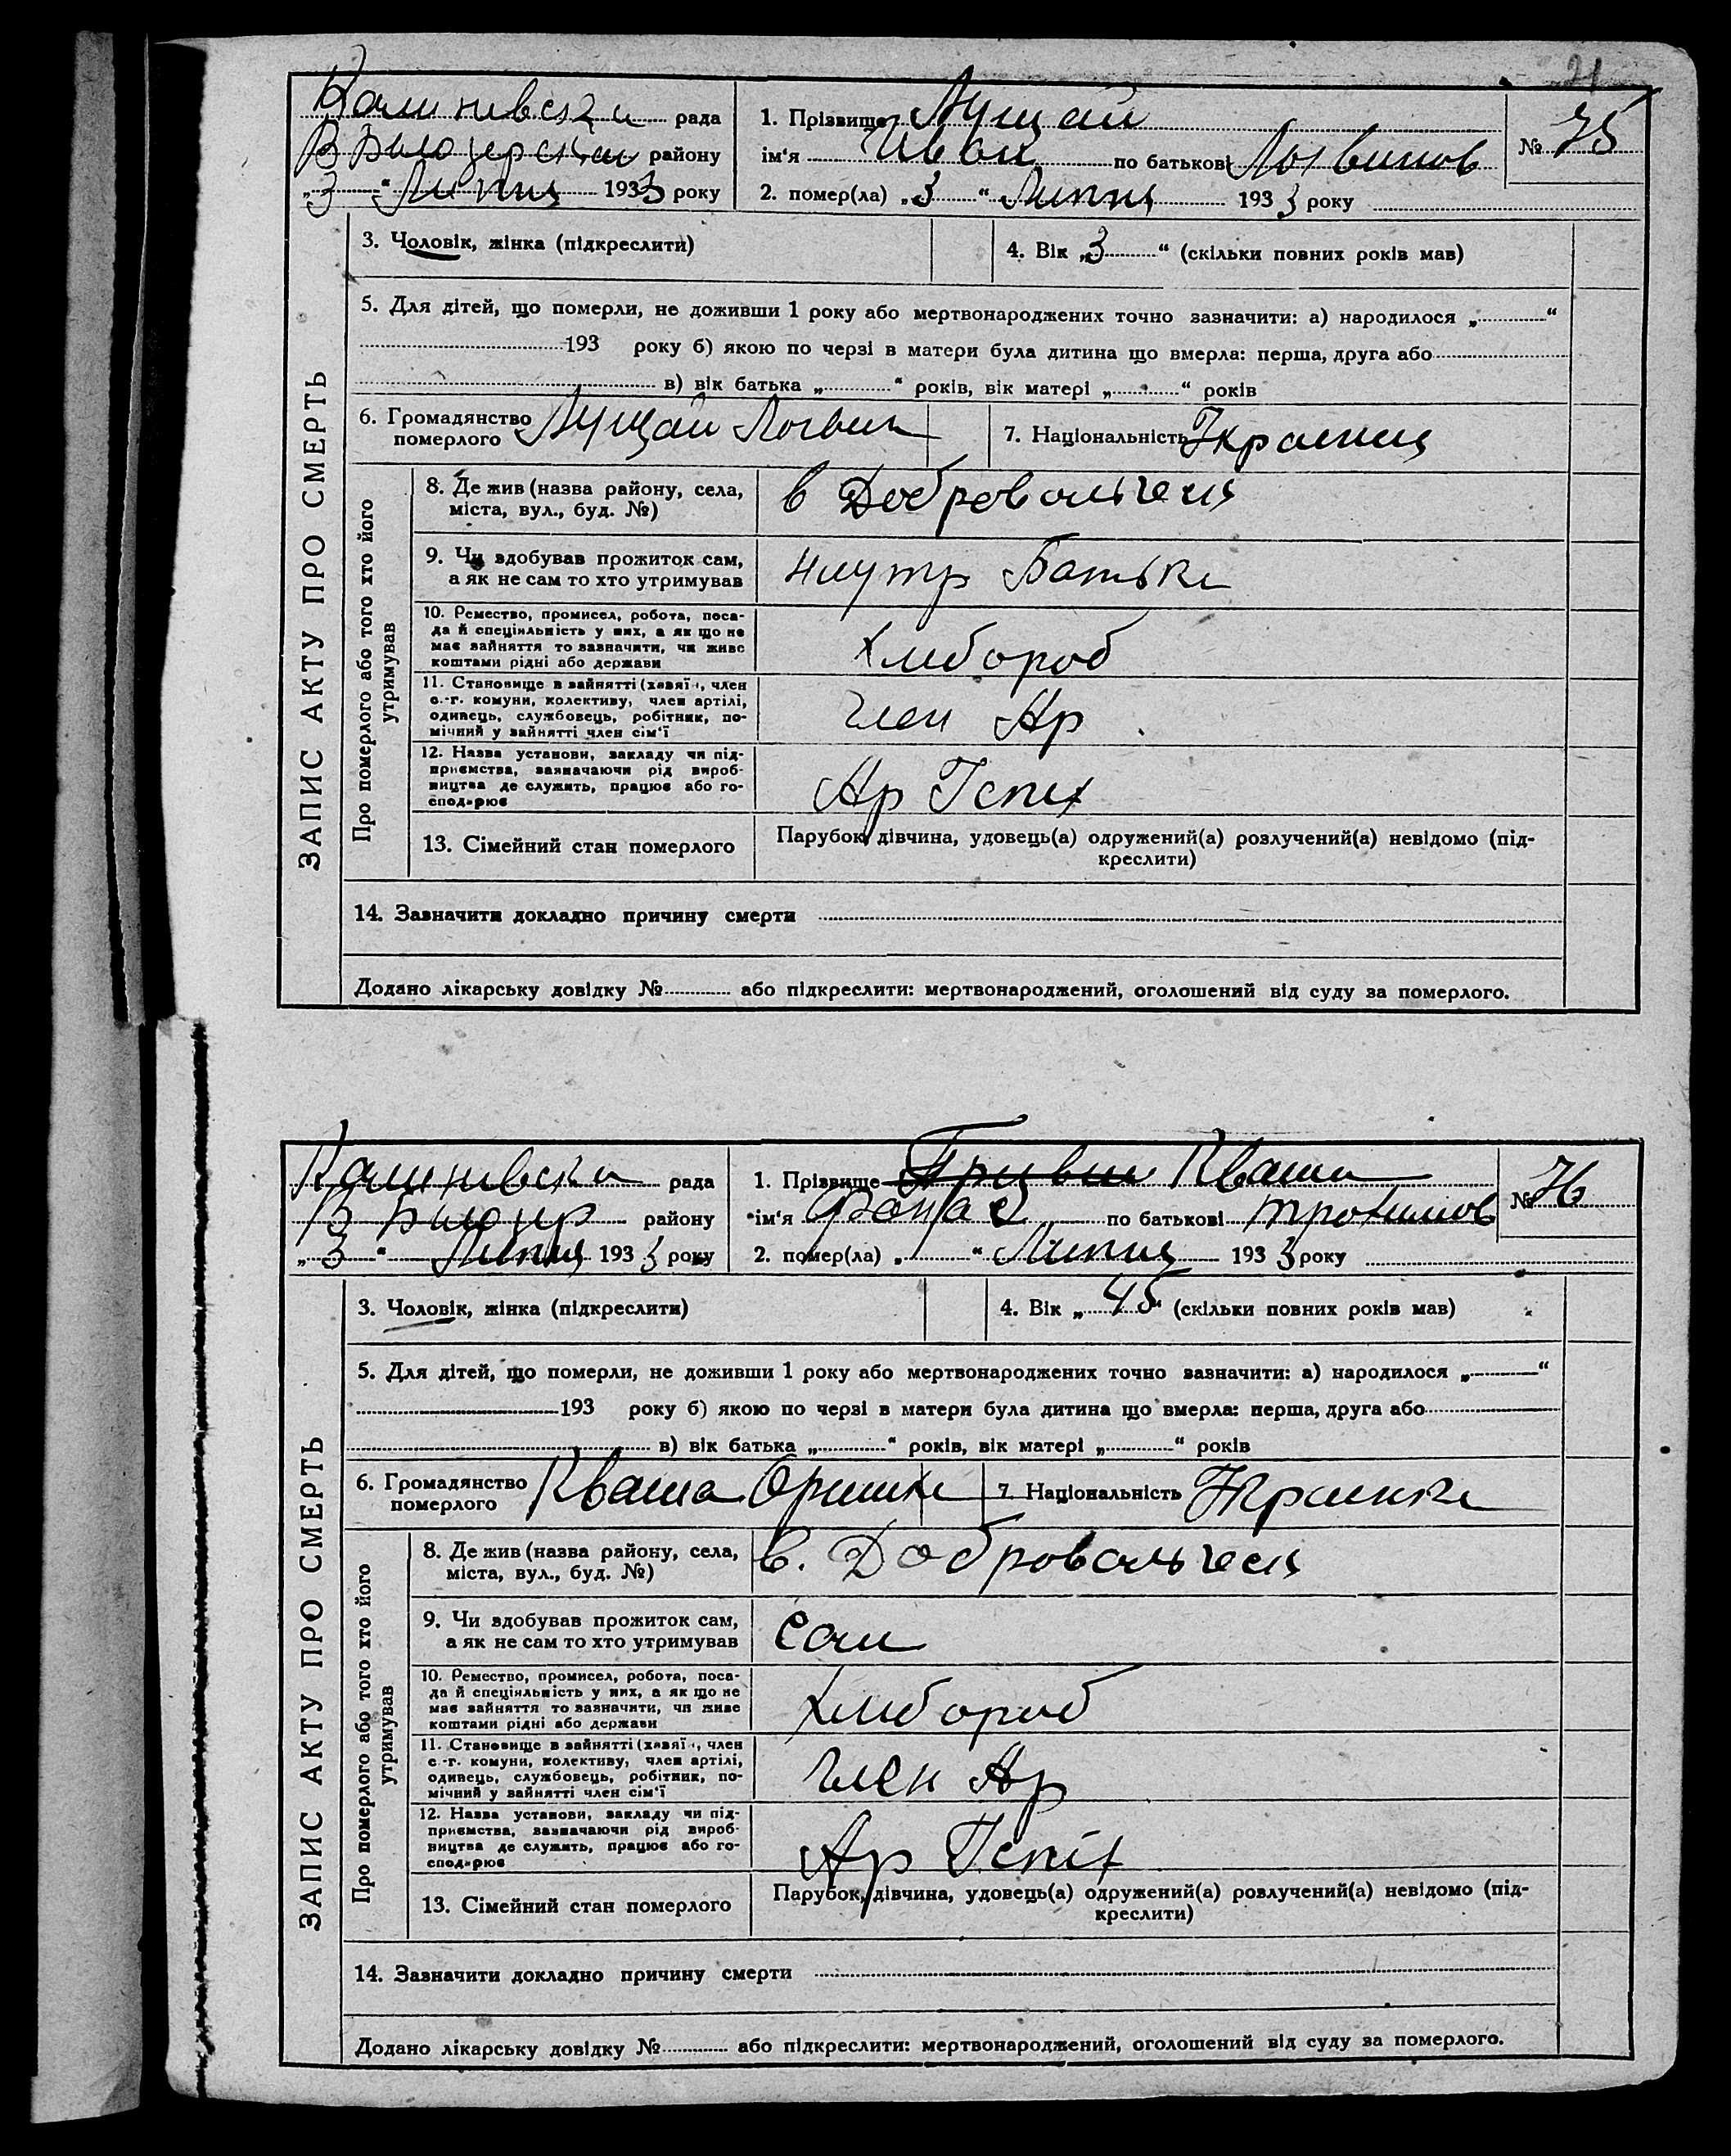 21
Калинівська рада
В Білозерськи району
„3“ Липня 1933 року
1. Прізвище Лущай
ім‘я Иван по батькові Логвинов
2. помер(ла) „3“ Липня 1933 року
№ 75
ЗАПИС АКТУ ПРО СМЕРТЬ
3. Чоловік, жінка (підкреслити)
4. Вік „3“ (скільки повних років мав)
5. Для дітей, що померли, не доживши 1 року або мертвонароджених точно зазначити: а) народилося „ “
193 року б) якою по черзі в матери була дитина що вмерла: перша, друга або
в) вік батька „ “ років, вік матері „ “ років
6. Громадянство
померлого Лущай Логвин
7. Національність Украинц
Про померлого або того хто його
утримував
8. Де жив (назва району, села,
міста, вул., буд. №)
в Добровольчец
9. Чи здобував прожиток сам,
а як не сам то хто утримував
Батька
10. Ремество, промисел, робота, поса-
да й спеціяльність у них, а як що не
має зайняття то зазначити, чи живе
коштами рідні або держави
Хлибороб
11. Становище в зайнятті (хазяї‹, член
с.-г. комуни, колективу, член артілі,
одинець, службовець, робітник, по-
мічний у зайнятті член сім‘ї
член Ар
12. Назва установи, закладу чи під-
приємства, зазначаючи рід вироб-
ництва де служить, працює або го-
сподарює
Ар Успих
13. Сімейний стан померлого
Парубок, дівчина, удовець(а) одружений(а) розлучений(а) невідомо (під-
креслити)
14. Зазначити докладно причину смерти
Додано лікарську довідку № або підкреслити: мертвонароджений, оголошений від суду за померлого.
Калинівська рада
В Білозер району
„3“ Липня 1933 року
1. Прізвище Кваша
ім‘я по батькові Трохимов
2. помер(ла) „ “ Липня 1933 року
№ 76
ЗАПИС АКТУ ПРО СМЕРТЬ
3. Чоловік, жінка (підкреслити)
4. Вік „45“ (скільки повних років мав)
5. Для дітей, що померли, не доживши 1 року або мертвонароджених точно зазначити: а) народилося „ “
193 року б) якою по черзі в матери була дитина що вмерла: перша, друга або
в) вік батька „ “ років, вік матері „ “ років
6. Громадянство
померлого Кваша Оришка
7. Національність Украинка
Про померлого або того хто його
утримував
8. Де жив (назва району, села,
міста, вул., буд. №)
в. Добровольчец
9. Чи здобував прожиток сам,
а як не сам то хто утримував
Сам
10. Ремество, промисел, робота, поса-
да й спеціяльність у них, а як що не
має зайняття то зазначити, чи живе
коштами рідні або держави
Хлибороб
11. Становище в зайнятті (хазяї‹, член
с.-г. комуни, колективу, член артілі,
одинець, службовець, робітник, по-
мічний у зайнятті член сім‘ї
член Ар
12. Назва установи, закладу чи під-
приємства, зазначаючи рід вироб-
ництва де служить, працює або го-
сподарює
Ар Успіх
13. Сімейний стан померлого
Парубок, дівчина, удовець(а) одружений(а) розлучений(а) невідомо (під-
креслити)
14. Зазначити докладно причину смерти
Додано лікарську довідку № або підкреслити: мертвонароджений, оголошений від суду за померлого.